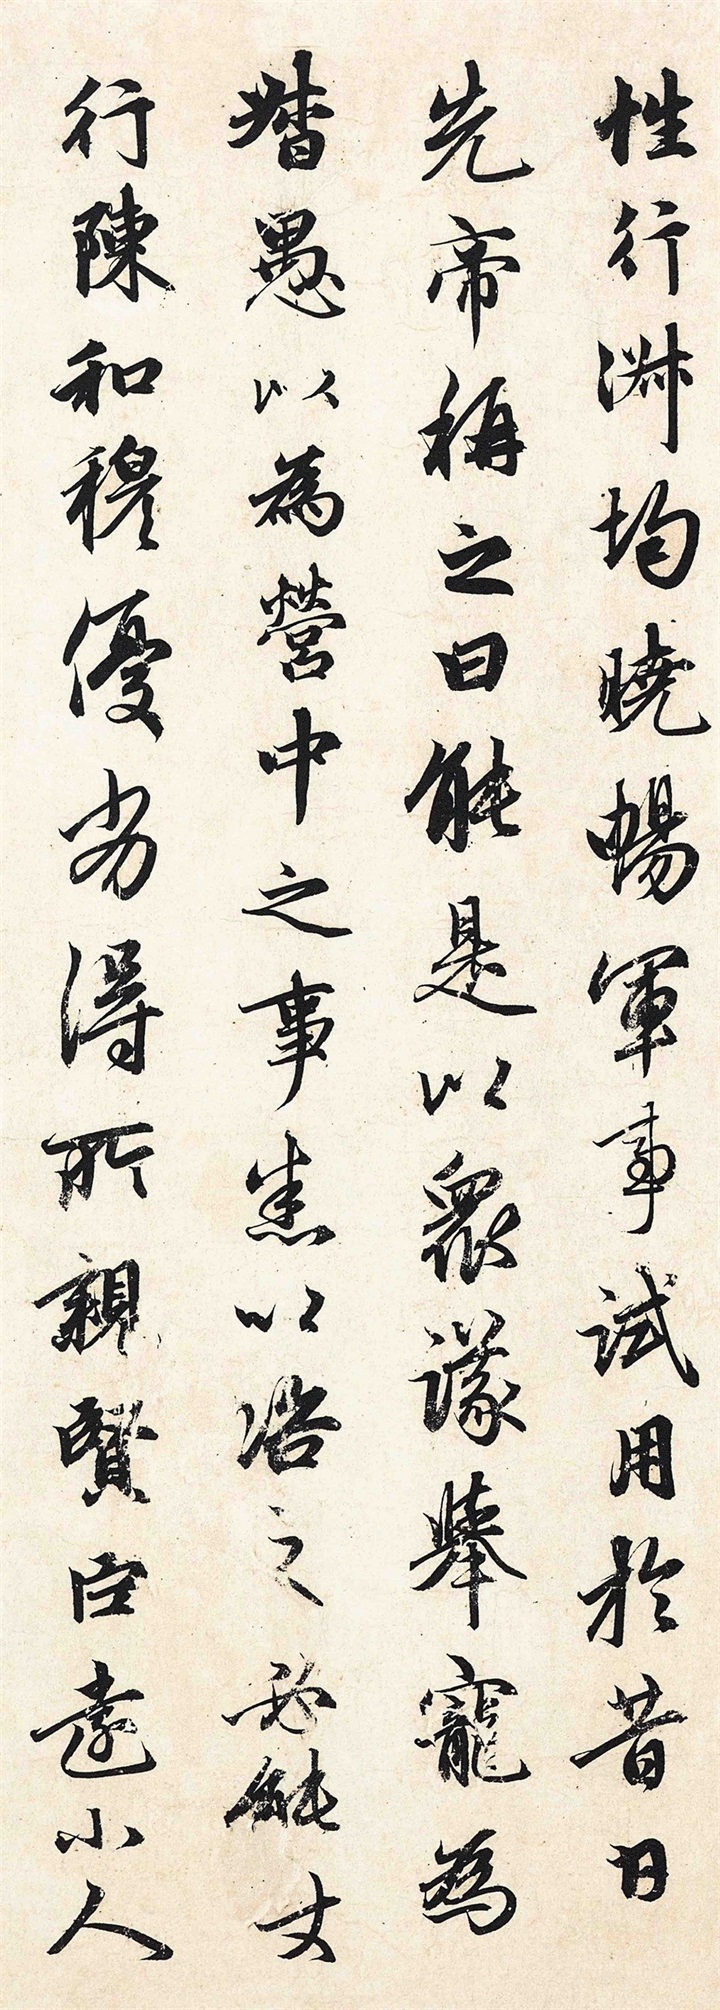 性行淑均曉暢軍事試用於昔日
先帝稱之曰能是以衆議舉寵為
督愚以為營中之事悉以咨之必能使
行陳和穆優劣得所親賢臣遠小人